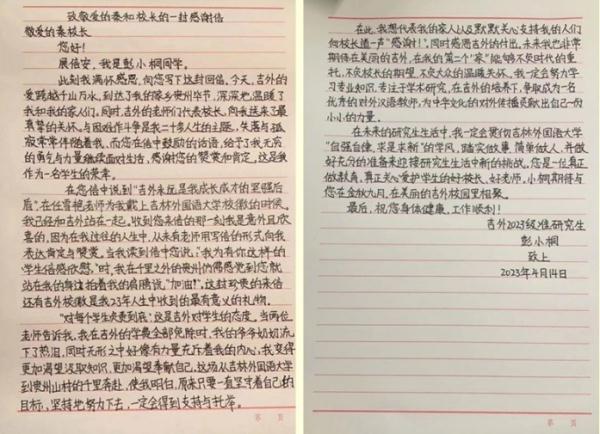 致敬爱的秦和校长的一封感谢信
敬爱的秦校长
您好!
展信安。我是彭小桐同学。
此刻我满怀感恩,向您写下这封回信。今天,吉外的
爱跨越千山万水,到达了我的家乡贵州毕节,深深地温暖了
我和我的家人们。同时,吉外的老师们代表校长,向我送来了最
真挚的关怀。与困难作斗争是我二十多年人生的主题,失落与孤
寂常常伴随着我,而您在信中鼓励的话语,给予了我无穷
的勇气与力量继续面对生活,感谢您的赞赏和肯定,这是我作
为一名学生的荣幸。
在您信中说到“吉外永远是我成长成才的坚强后
盾”,在任雪艳老师为我戴上吉林外国语大学校徽的时候,
我已经和吉外站在一起。收到您来信的那一刻我是意外且欣
喜的,因为在我过往的人生中,从未有老师用写信的形式向我
表达肯定与赞赏。当我读到信中您说:“我为有你这样的
学生倍感欣慰,”时,我在千里之外的贵州仿佛感觉到您就
站在我的身边拍着我的肩膀说,“加油!”,这封珍贵的来信
还有吉外校徽是我23年人生中收到的最有意义的礼物。
“对每个学生负责到底”,这是吉外对学生的态度。当两位
老师告诉我,我在吉外的学费全部免除时,我的爷爷切切流
下了热泪,同时无形之中好像有力量充斥着我的内心,我变得
更加渴望汲取知识,更加渴望奉献自己。这场从吉林外国语大学
到贵州山村的千里奔赴,使我明白,原来只要一直坚守着自己的
目标,坚持地努力下去,一定会得到支持与托举。
第 页
在此,我想代表我的家人以及默默关心支持我的人们
向校长道一声“感谢!”,同时感恩吉外的付出。未来我也非常
期待在美丽的吉外,在我的第二个“家”能够不负时代的重
托,不负校长的期望,不负大众的温暖关怀。我一定会努力学
习专业知识,专注于学术研究,在吉外的培养下,争取成为一名
优秀的对外汉语教师,为中华文化的对外传播贡献出自己一份
小小的力量。
在未来的研究生生活中,我一定会贯彻吉林外国语大学
“自强自律,求是求新”的学风,踏实做事,简单做人,并做
好充分的准备来迎接研究生生活中新的挑战。您是一位真正
做教育,真正关心爱护学生的好校长、好老师。小桐期待与
您在金秋九月,在美丽的吉外校园里相聚。
最后,祝您身体健康,工作顺利!
吉外2023级准研究生
彭小桐
致上
2023年4月14日
第 页